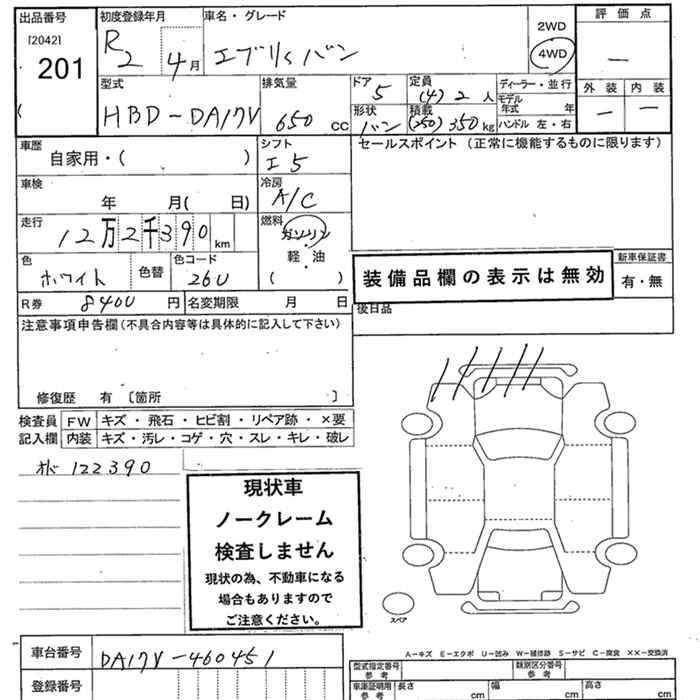 出品番号 初度登録年月 車名・グレード 2WD 評価点
[2042] R2 4月 エブリイバン 4WD —
201
型式 排気量 ドア 5 定員 (4) 2 人 ディーラー・並行 外装 内装
HBD-DA17V 650 cc 形状 バン 積載 (250) 350 kg モデル年式 年 — —
ハンドル 左・右
車歴 自家用・( ) シフト I5 セールスポイント (正常に機能するものに限ります)
車検 年 月( 日) 冷房 A/C
走行 12万2千390 km 燃料 ガソリン
軽・油
( )
色 ホワイト 色替 色コード 26U
装備品欄の表示は無効 新車保証書
有・無
R券 8400 円 名変期限 月 日
後日品
注意事項申告欄(不具合内容等は具体的に記入して下さい)
修復歴 有 〔箇所 〕
検査員 FW キズ・飛石・ヒビ割・リペア跡・×要
記入欄 内装 キズ・汚レ・コゲ・穴・スレ・キレ・破レ
122390
現状車
ノークレーム
検査しません
現状の為、不動車になる
場合もありますので
ご注意ください。
スペア
A-キズ E-エクボ U-凹み W-補修跡 S-サビ C-腐食 ××-交換済
車台番号 DA17V-460451
登録番号
型式指定番号 参考 類別区分番号 参考
車庫証明用 参考 長さ cm 幅 cm 高さ cm